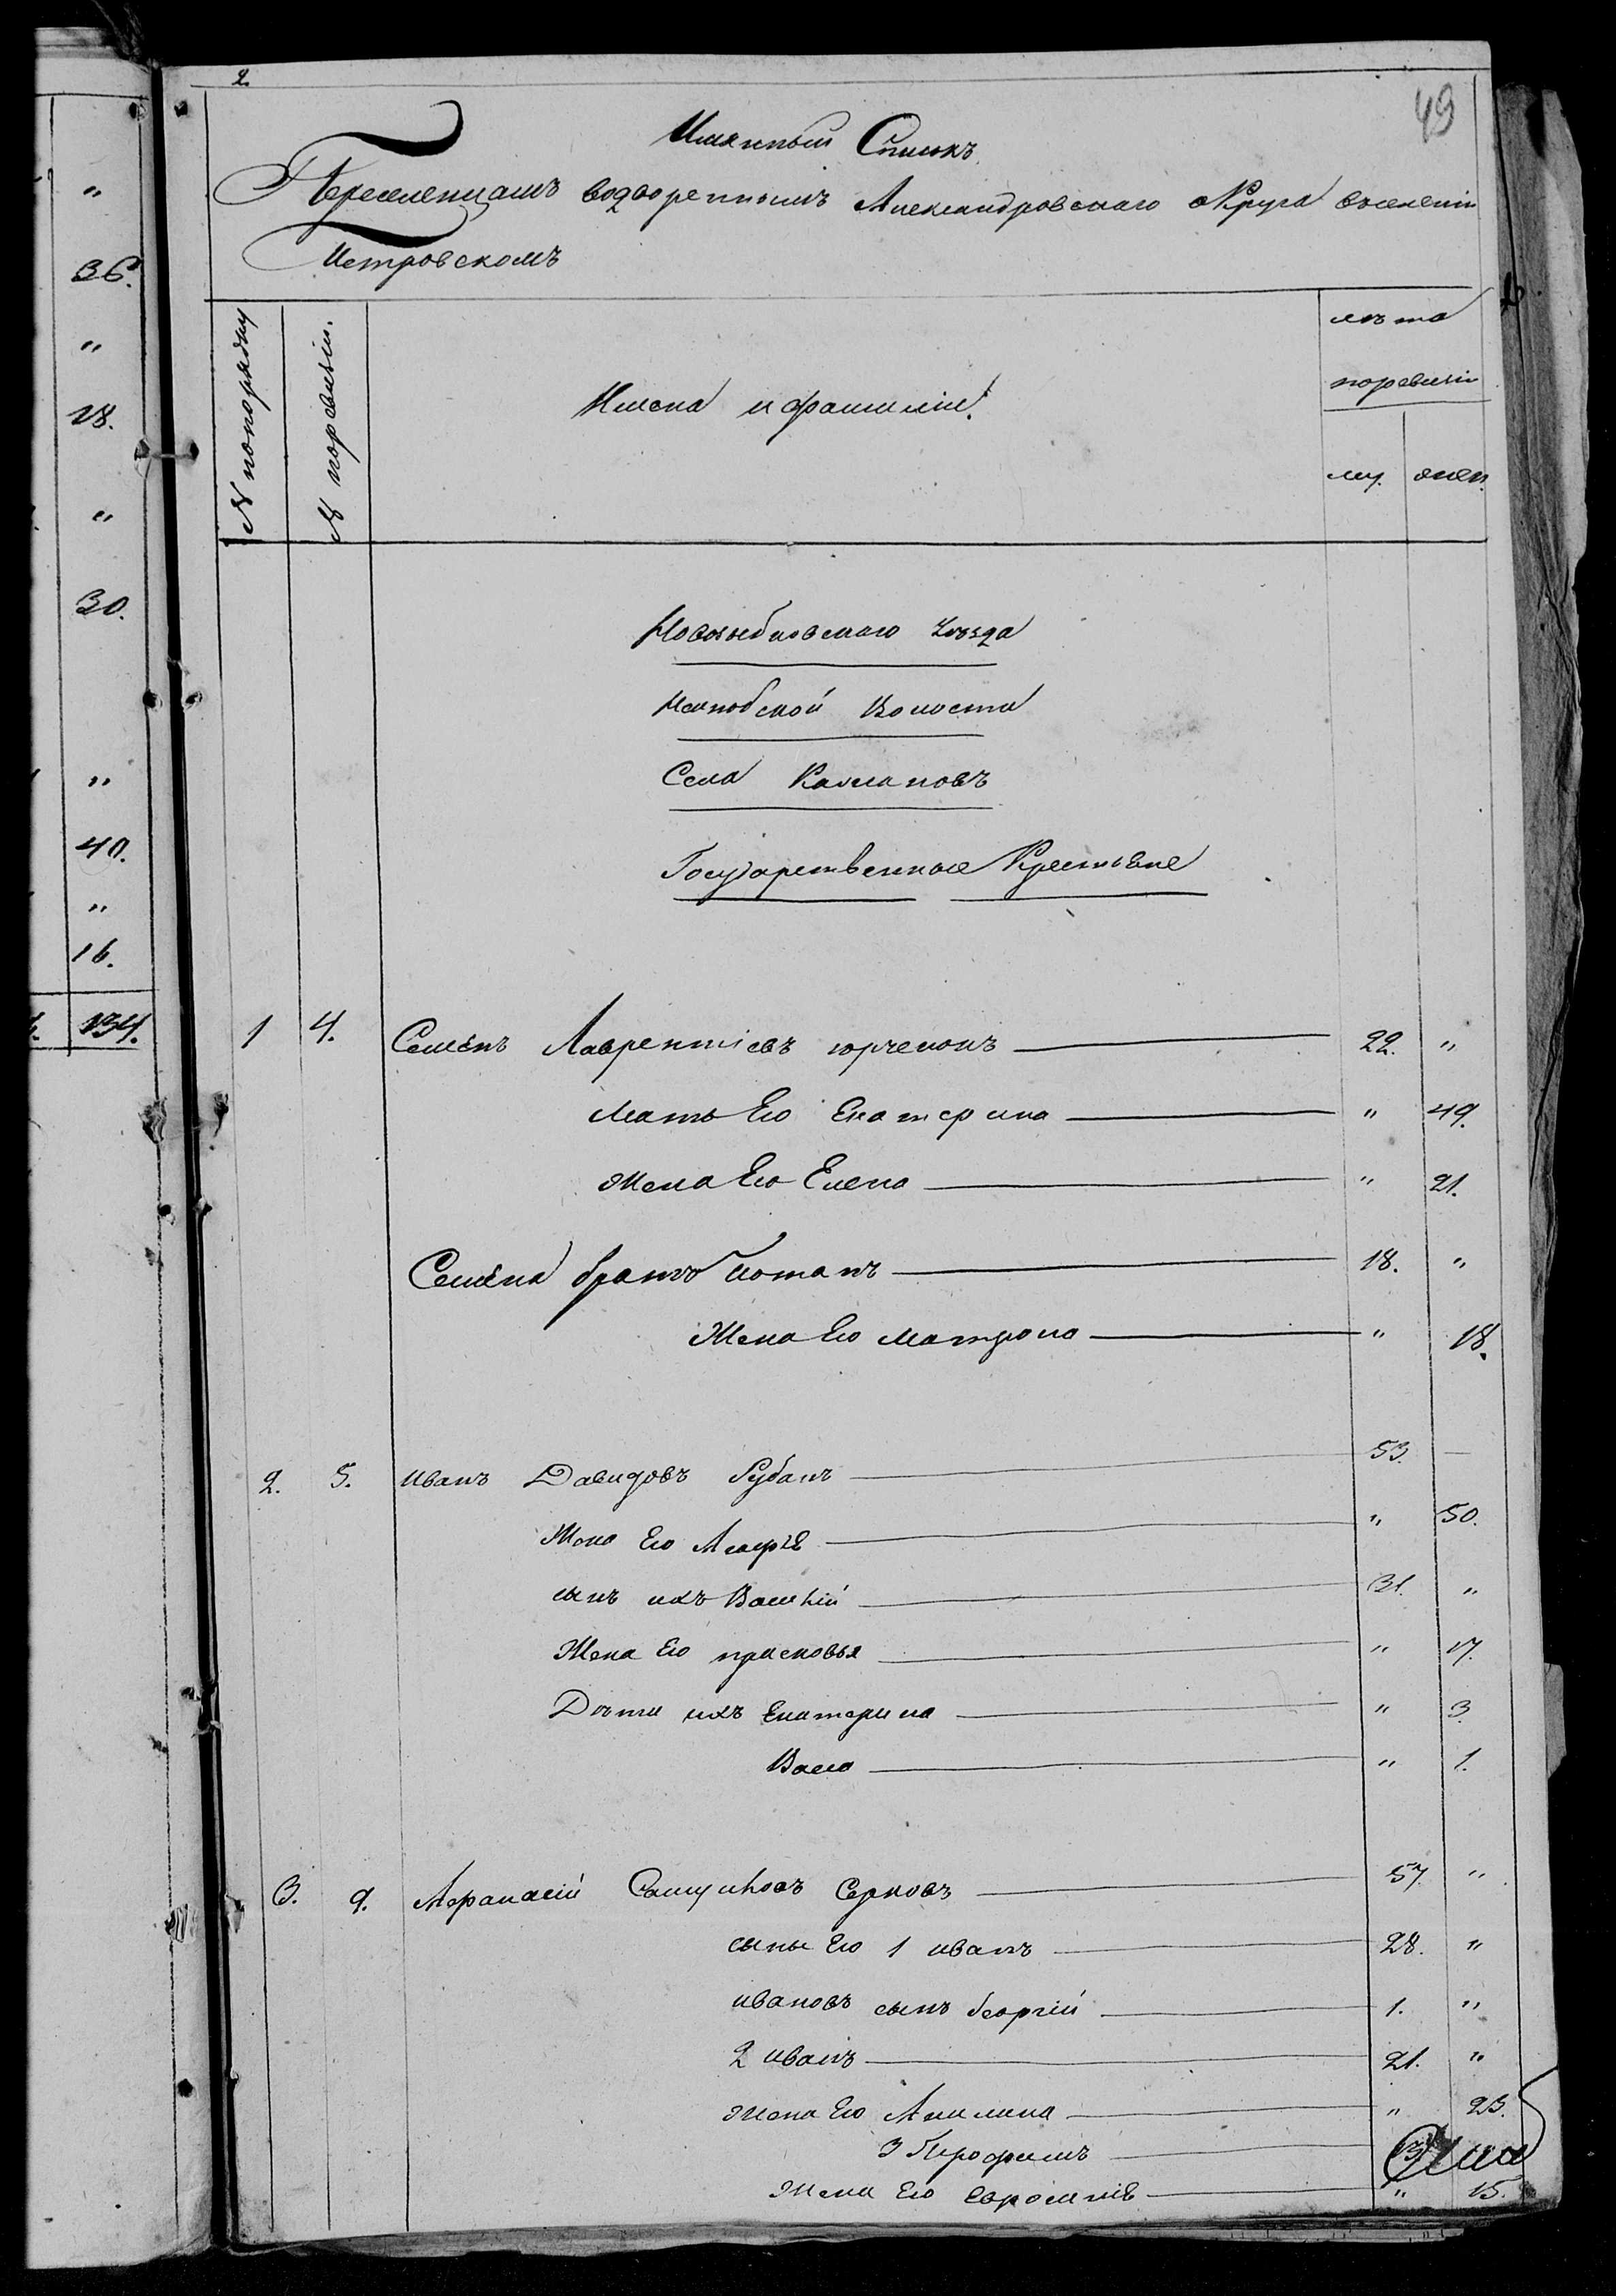 2.
49
Имянный Списокъ
Переселенцамъ водвореннымъ Александровскаго Округа въселеніи
Петровскомъ
№ попорядку
№ поревизіи.
Имена ифамиліи.
лѣта
поревизіи
му. жен.
Новозыбковскаго Уѣзда
Волости
Села Калмановъ
Государственные Крестьяне
1 4. Семёнъ Лаврентіевъ юрченокъ 22. "
Мать Его Екатерина " 49.
Жена Его Елена " 21.
Семёна братъ Потапъ 18. "
Жена Его Матрона " 18.
2. 5. Иванъ Давидовъ Рубанъ 53. —
Жена Его Агафія " 50.
сынъ ихъ Василій 31. "
Жена Его прасковья " 17.
Дѣти ихъ Екатерина " 3.
Васса " 1.
3. 9. Афанасій Самуиловъ Серковъ 57 "
сыны Его 1 иванъ 28. "
ивановъ сынъ Георгій 1. "
2 иванъ 21. "
жена Его Акилина " 23.
3 Трофимъ
Жена Его Евросинія " 15.
"
36.
"
18.
"
30.
"
40.
"
16.
134.